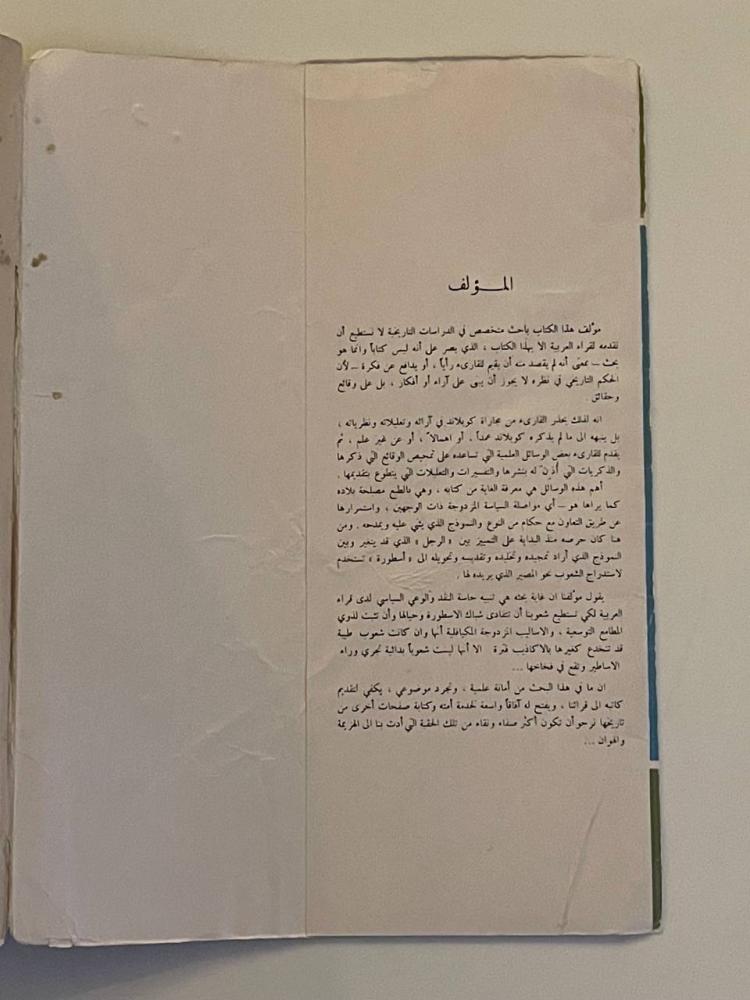 المـــؤلف
مؤلف هذا الكتاب باحث متخصص في الدراسات التاريخية لا نستطيع أن
نقدمه لقراء العربية الا بهذا الكتاب ، الذي يصر على أنه ليس كتاباً وانما هو
بحث – بمعنى أنه لم يقصد منه أن يقيم للقارىء رأياً ، أو يدافع عن فكرة – لأن
الحكم التاريخي في نظره لا يجوز أن يبنى على آراء أو أفكار ، بل على وقائع
وحقائق
انه لذلك يحذر القارىء من مجاراة كوبلاند في آرائه وتعليلاته ونظرياته ،
بل ينبهه الى ما لم يذكره كوبلاند عمداً ، أو اهمالاً ، أو عن غير علم ، ثم
يقدم للقارىء بعض الوسائل العلمية التي تساعده على تمحيص الوقائع التي ذكرها
والذكريات التي أُذِنَ له بنشرها والتفسيرات والتعليلات التي يتطوع بتقديمها .
أهم هذه الوسائل هي معرفة الغاية من كتابه ، وهي بالطبع مصلحة بلاده
كما يراها هو – أي مواصلة السياسة المزدوجة ذات الوجهين ، واستمرارها
عن طريق التعاون مع حكام من النوع والنموذج الذي يثني عليه ويمدحه . ومن
هنا كان حرصه منذ البداية على التمييز بين « الرجل » الذي قد يتغير وبين
النموذج الذي أراد تمجيده وتخليده وتقديسه وتحويله الى « أسطورة » تستخدم
لاستدراج الشعوب نحو المصير الذي يريده لها .
يقول مؤلفنا ان غاية بحثه هي تنبيه حاسة النقد والوعي السياسي لدى قراء
العربية لكي تستطيع شعوبنا أن تتفادى شباك الاسطورة وحبالها وأن تثبت لذوي
المطامع التوسعية ، والاساليب المزدوجة المكيافلية أنها وان كانت شعوب طيبة
قد تنخدع كغيرها بالاكاذيب فترة الا أنها ليست شعوباً بدائية تجري وراء
الاساطير وتقع في فخاخها ...
ان ما في هذا البحث من أمانة علمية ، وتجرد موضوعي ، يكفي لتقديم
كاتبه الى قرائنا ، ويفتح له آفاقاً واسعة لخدمة أمته وكتابة صفحات أخرى من
تاريخها نرجو أن تكون أكثر صفاء ونقاء من تلك الحقبة التي أدت بنا الى الهزيمة
والهوان ...